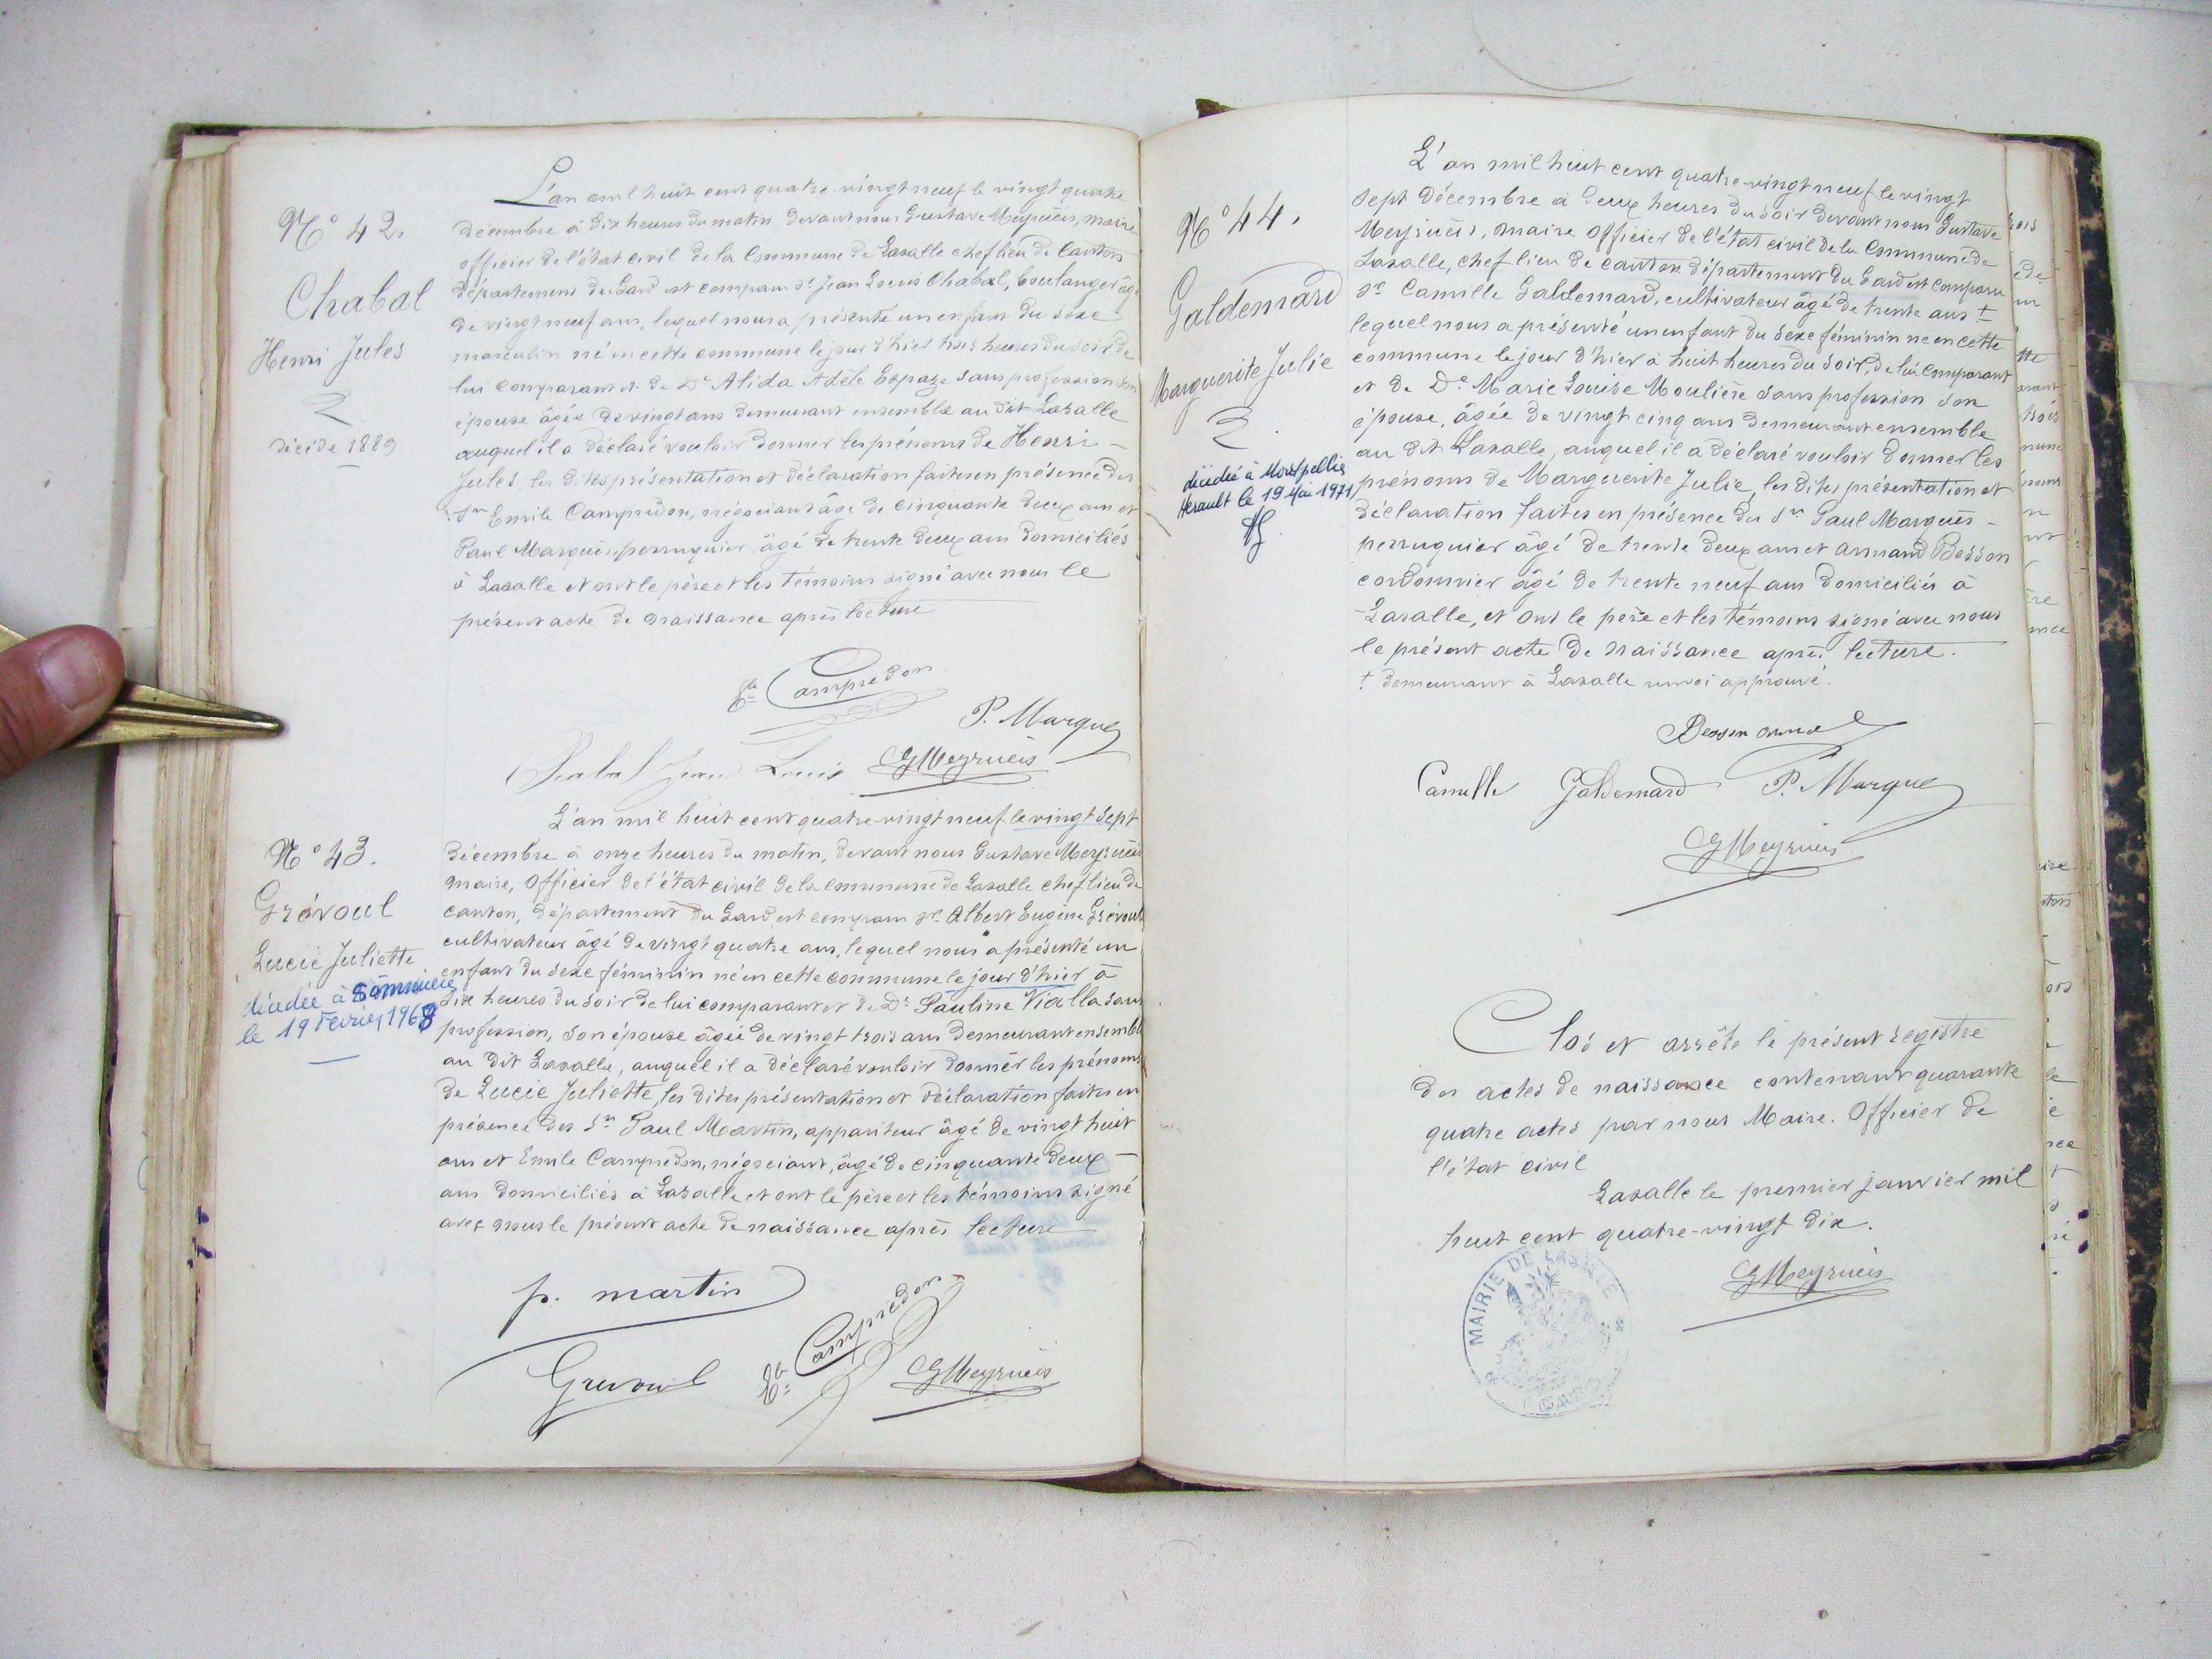 N° 42.
Chabal
Henri Jules
décédé 1889
L'an mil huit cent quatre-vingt neuf le vingt quatre
décembre à dix heures du matin devant nous Gustave Meyrueis, maire
officier de l'état civil de la Commune de Lasalle chef lieu de Canton
département du Gard est comparu Sr Jean Louis Chabal, boulanger âgé
de vingt neuf ans, lequel nous a présenté un enfant du sexe
masculin né en cette commune le jour d'hier trois heures du soir de
lui comparant et de De Alida Adèle Espaze sans profession son
épouse âgée de vingt ans demeurant ensemble au dit Lasalle
auquel il a déclaré vouloir donner les prénoms de Henri -
Jules, les dites présentation et déclaration faites en présence des
Srs Emile Campredon, négociant âgé de cinquante deux ans et
Paul Marques perruquier âgé de trente deux ans domiciliés
à Lasalle et ont le père et les témoins signé avec nous le
présent acte de naissance après lecture
Ele Campredon
P. Marques
Chabal Jean Louis GMeyrueis
N° 43.
Grévoul
Lucie Juliette
décédée à Sommières
le 19 Février 1968
L'an mil huit cent quatre-vingt neuf le vingt sept
décembre à onze heures du matin, devant nous Gustave Meyrueis
maire, officier de l'état civil de la commune de Lasalle chef lieu de
canton, département du Gard, est comparu Sr Albert Eugène Grévoul
cultivateur âgé de vingt quatre ans, lequel nous a présenté un
enfant du sexe féminin né en cette commune le jour d'hier à
dix heures du soir de lui comparant et de De Pauline Vialla sans
profession, son épouse âgée de vingt trois ans demeurant ensemble
au dit Lasalle, auquel il a déclaré vouloir donner les prénoms
de Lucie Juliette, les dites présentation et déclaration faites en
présence des Srs Paul Martin, appariteur âgé de vingt huit
ans et Emile Campredon, négociant, âgé de cinquante deux -
ans domiciliés à Lasalle et ont le père et les témoins signé
avec nous le présent acte de naissance après lecture
p. martin
Grevoul Ele Campredon GMeyrueis
N° 44.
Galdemard
Marguerite Julie
décédée à Montpellier
Hérault le 19 Mai 1971
L'an mil huit cent quatre-vingt neuf le vingt
sept décembre à deux heures du soir devant nous Gustave
Meyrueis, maire officier de l'état civil de la Commune de
Lasalle, chef lieu de canton département du Gard est comparu
Sr Camille Galdemard, cultivateur âgé de trente ans †
lequel nous a présenté un enfant du sexe féminin né en cette
commune le jour d'hier à huit heures du soir, de lui comparant
et de De Marie Louise Moulière sans profession son
épouse, âgée de vingt cinq ans demeurant ensemble
au dit Lasalle, auquel il a déclaré vouloir donner les
prénoms de Marguerite Julie, les dites présentation et
déclaration faites en présence des Srs Paul Marques -
perruquier âgé de trente deux ans et Armand Besson
cordonnier âgé de trente neuf ans domiciliés à
Lasalle, et ont le père et les témoins signé avec nous
le présent acte de naissance après lecture.
† demeurant à Lasalle renvoi approuvé.
Besson
Camille Galdemard P. Marques
GMeyrueis
Clos et arrêté le présent registre
des actes de naissance contenant quarante
quatre actes par nous Maire. Officier de
l'état civil
Lasalle le premier janvier mil
huit cent quatre-vingt dix.
GMeyrueis
MAIRIE DE LASALLE
(GARD)